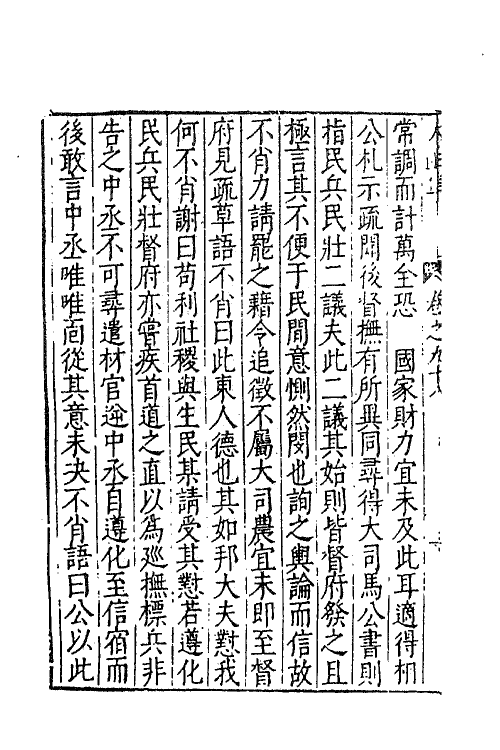 卷之九十八
常調而計萬全恐　國家財力宜未及此耳適得相
公札示疏聞後督撫有所異同尋得大司馬公書則
指民兵民壯二議夫此二議其始則皆督府發之且
極言其不便于民間意惻然閔也詢之輿論而信故
不肖力請罷之藉令追徵不屬大司農宜未即至督
府見疏草語不肖曰此東人德也其如邦大夫懟我
何不肖謝曰苟利社稷與生民某請受其懟若遵化
民兵民壯督府亦嘗疾首道之直以爲巡撫標兵非
告之中丞不可尋遣材官逆中丞自遵化至信宿而
後敢言中丞唯唯卣從其意未決不肖語曰公以此